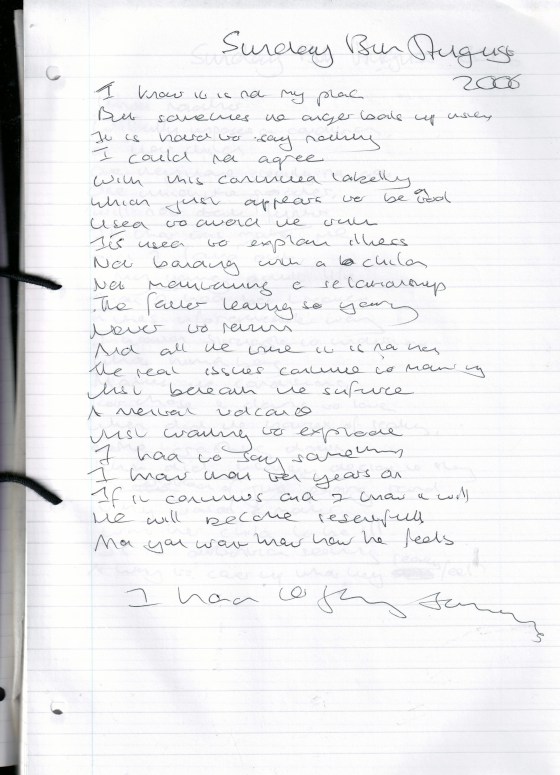 Sunday 8th August
2006
I know it is not my place
But sometimes the anger boils up inside
It is hard to say nothing
I could not agree
With this continued
which just appears to be
Used to avoid the truth
It's used to explain illness
Not bonding with a child
Not maintaining a relationship
The father leaving so young
Never to return
And all the time it is
The real issues continue to
Just beneath the surface
A volcano
Just waiting to explode
I had to say something
I know that ten years on
If it continues and I know it will
He will become resentful
how he feels
I had to